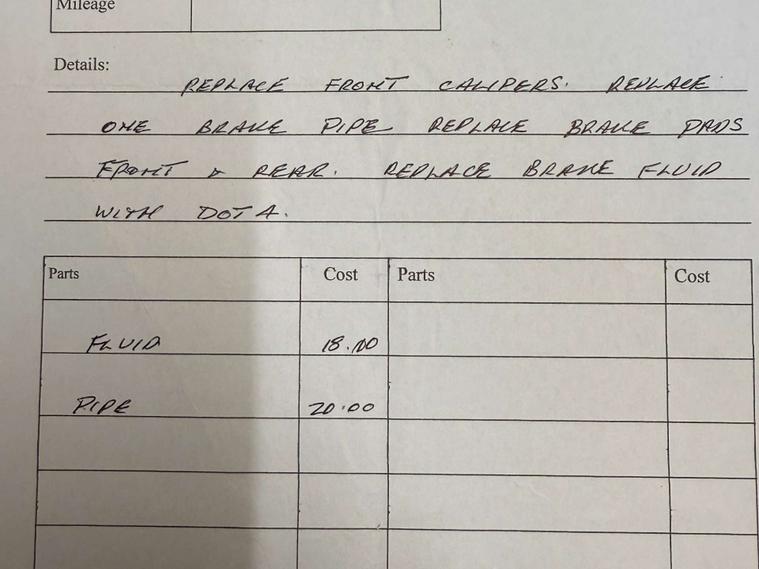 Mileage
Details:
REPLACE FRONT CALIPERS. REPLACE
ONE BRAKE PIPE REPLACE BRAKE PADS
FRONT & REAR. REPLACE BRAKE FLUID
WITH DOT 4.
Parts Cost Parts Cost
FLUID 18.00
PIPE 20.00